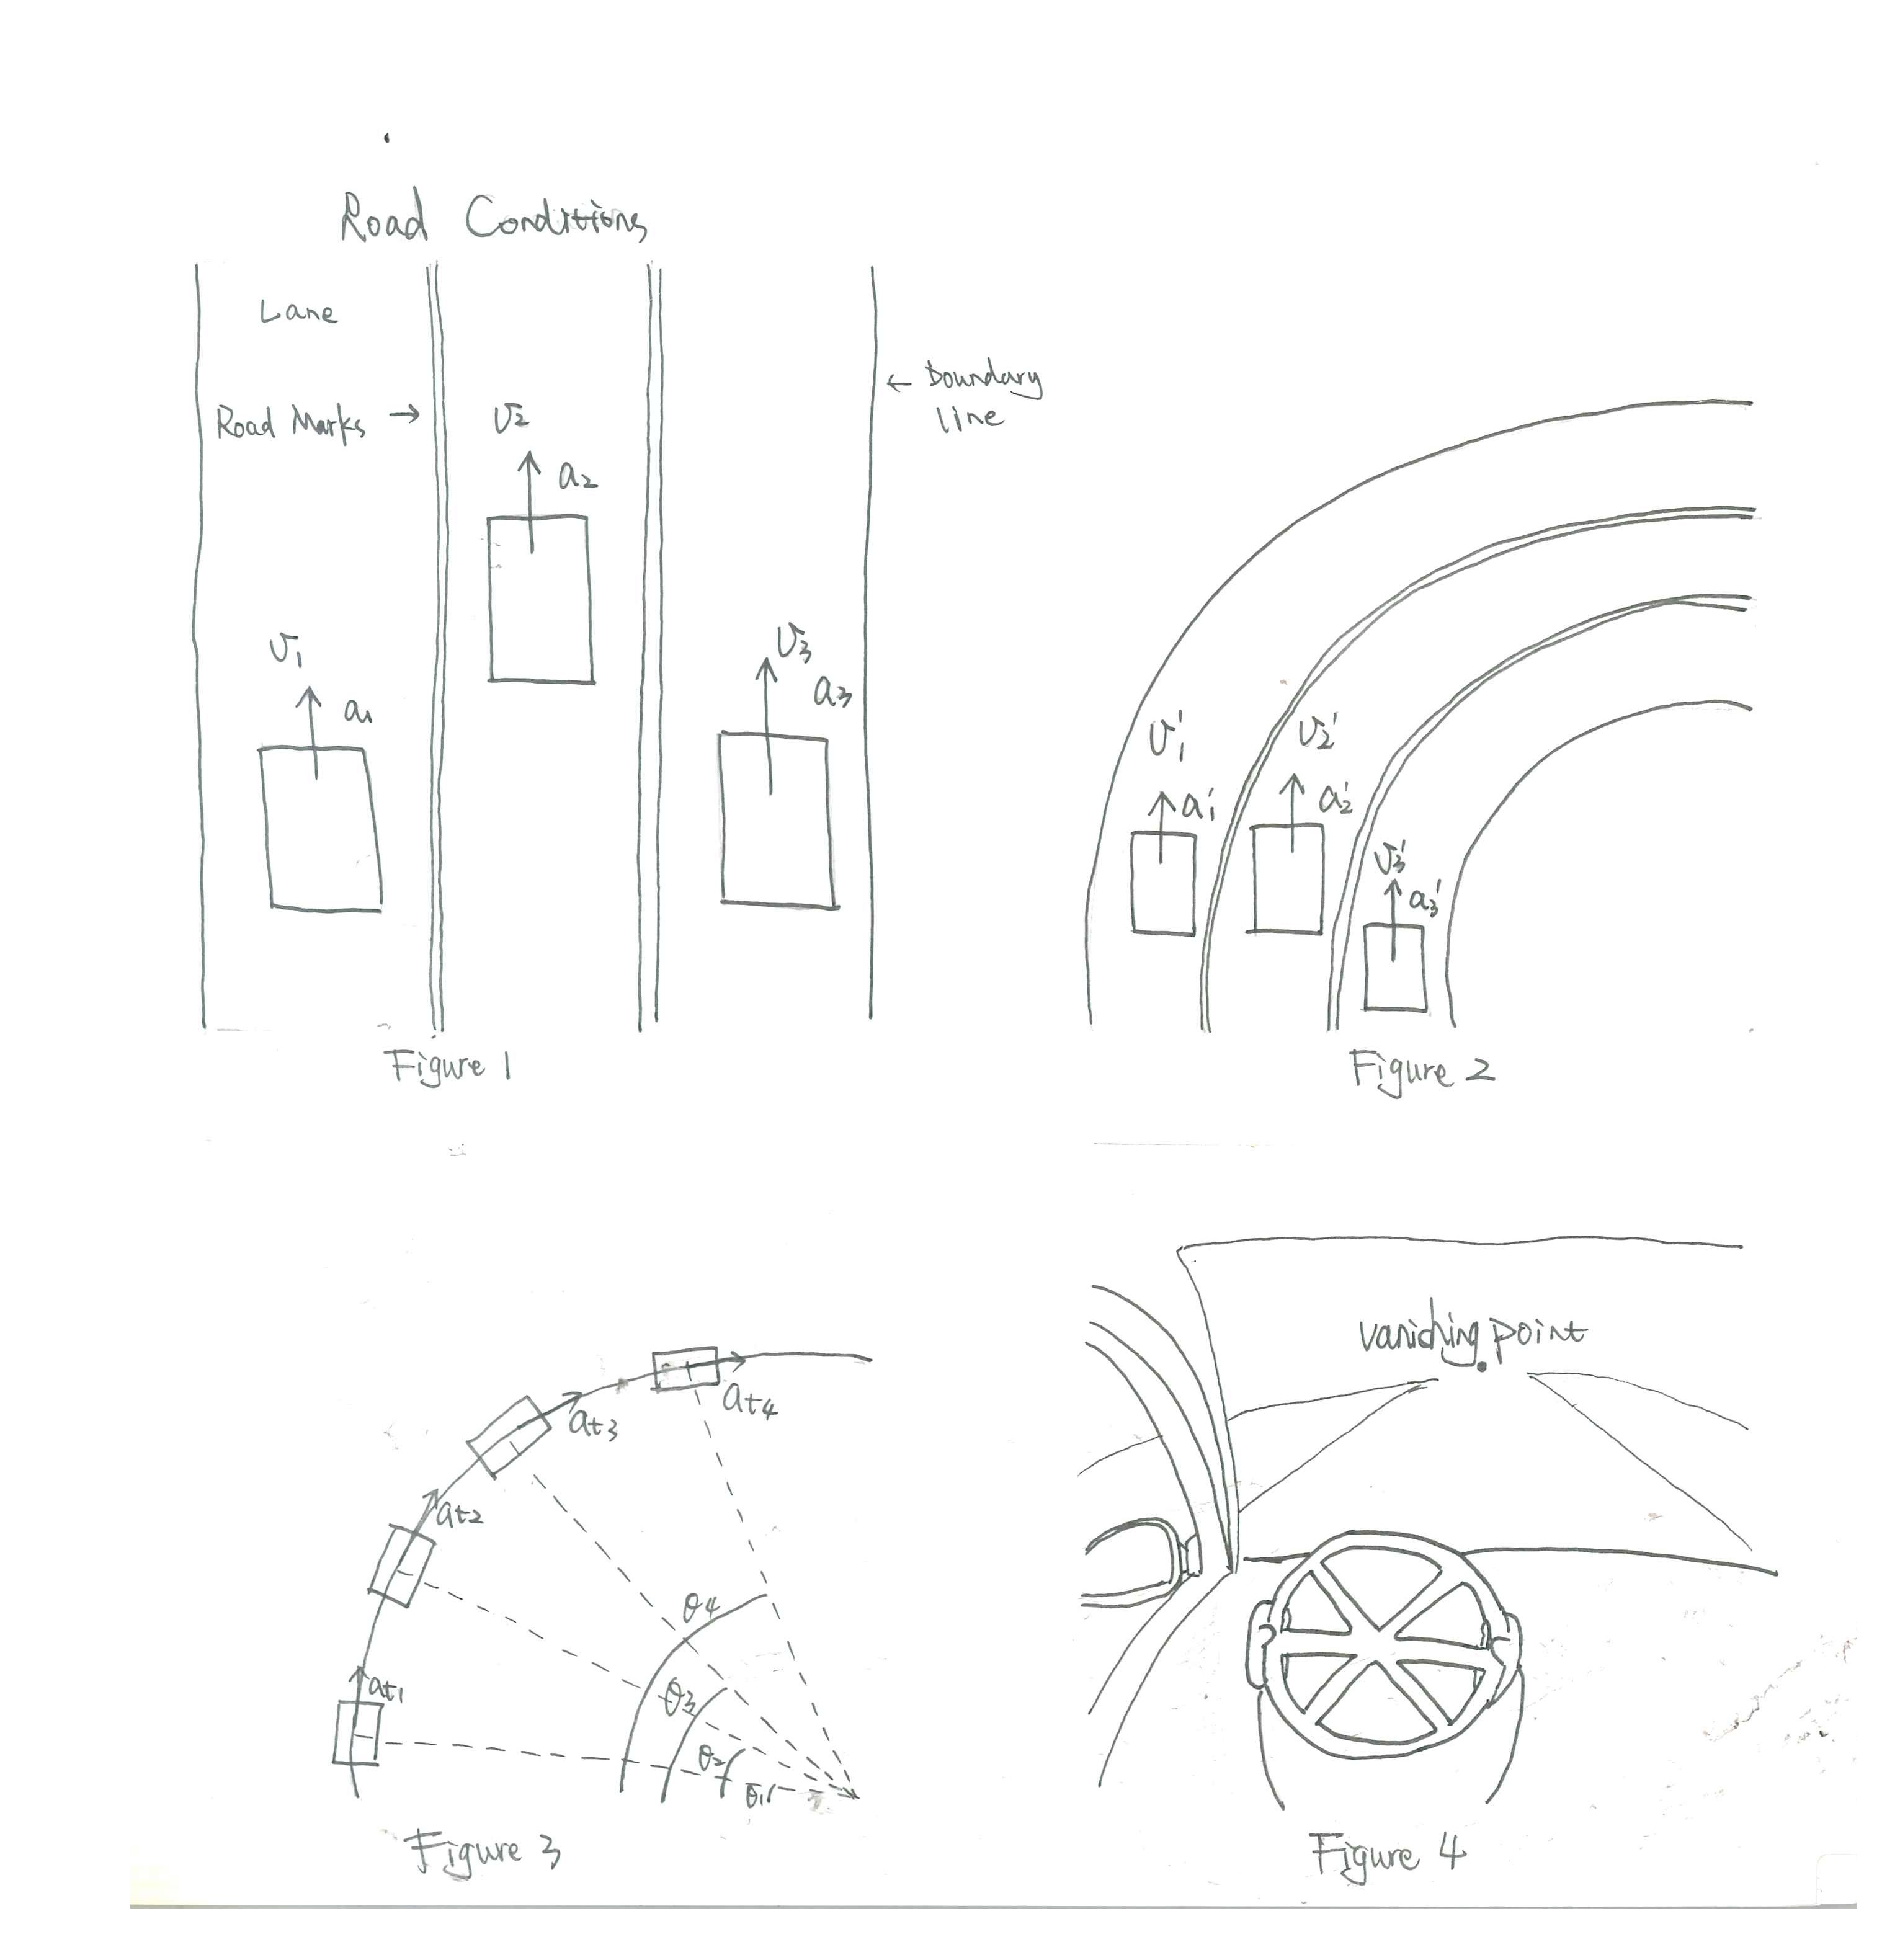 Road Conditions
Lane
Road Marks →
← boundary
line
v₂
a₂
v₁
a₁
v₃
a₃
Figure 1
v₁'
a₁'
v₂'
a₂'
v₃'
a₃'
Figure 2
at₄
at₃
at₂
at₁
θ₄
θ₃
θ₂
θ₁
Figure 3
vanishing point
Figure 4